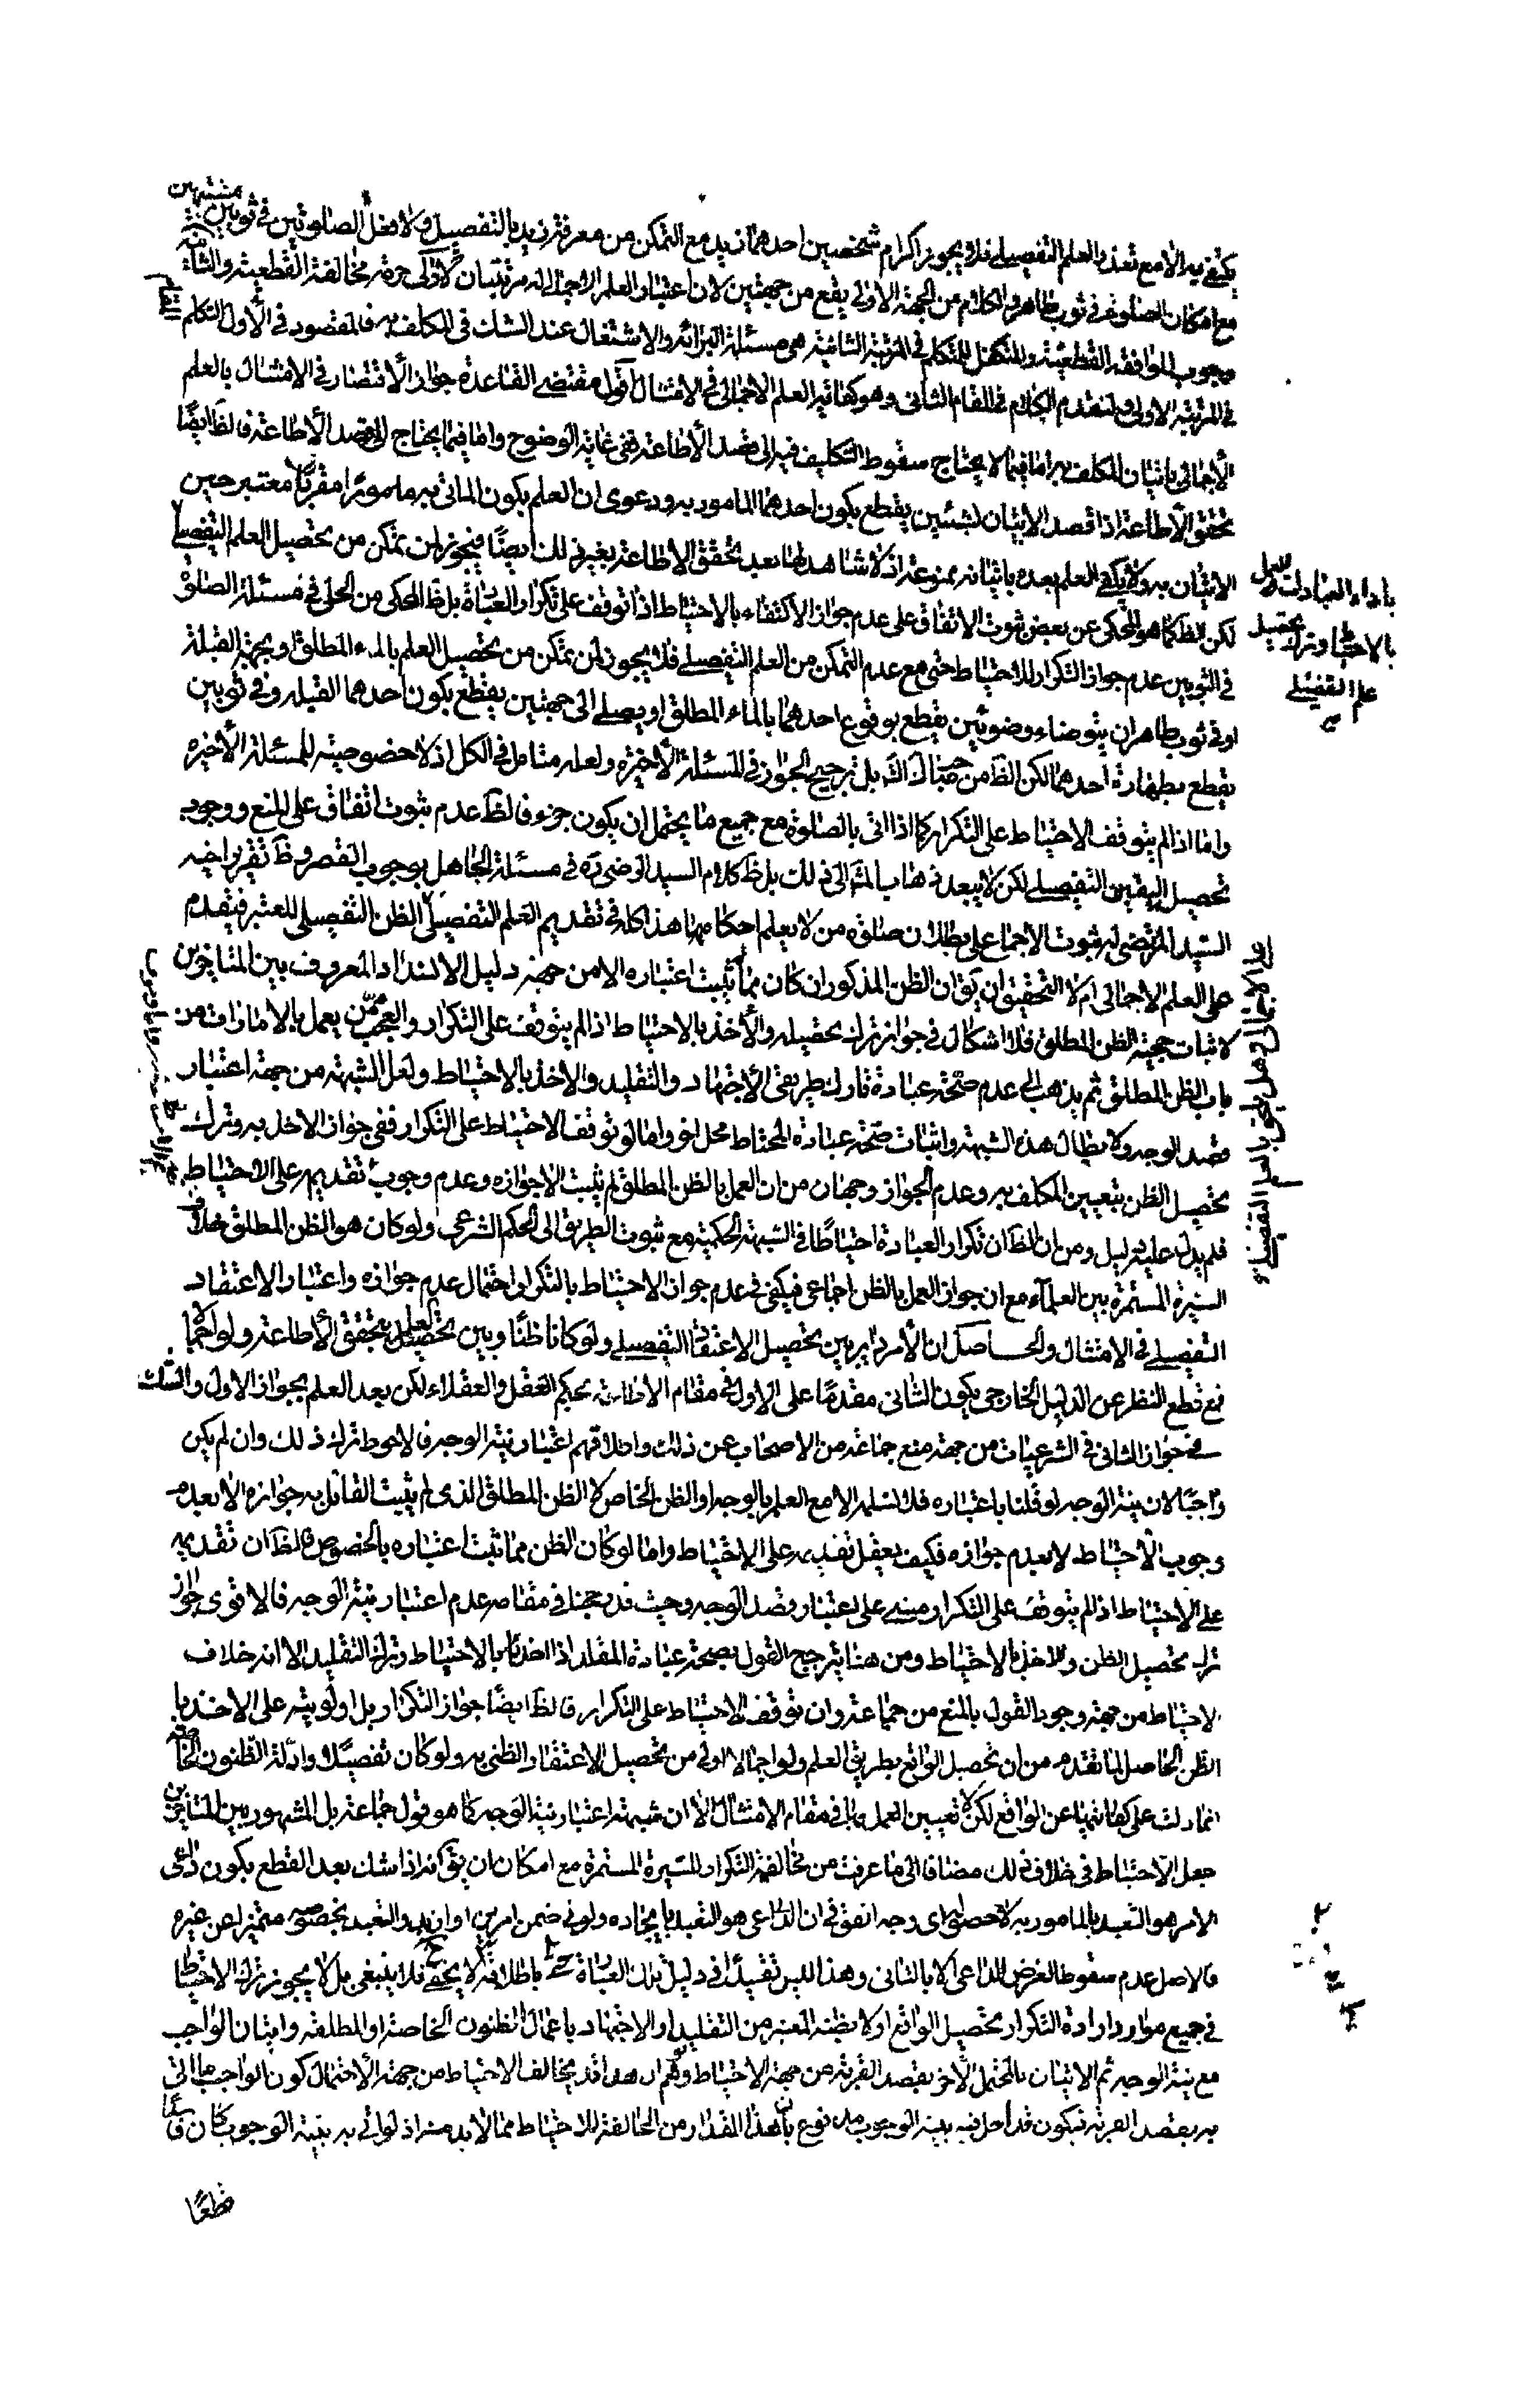 يكتفى به الا مع تعذر العلم التفصيلى فلا يجوز اكرام شخصين احدهما زيد مع التمكن من معرفة زيد بالتفصيل ولا فعل الصلوتين فى ثوبين مشتبهين
مع امكان الصلوة فى ثوب طاهر والكلام من الجهة الاولى يقع من جهتين لان اعتبار العلم الاجمالى له مرتبتان الاولى حرمة مخالفة القطعية والثانية
وجوب الموافقة القطعية والمتكفل للتكلم فى المرتبة الثانية هى مسئلة البرائة والاشتغال عند الشك فى المكلف به فالمقصود فى الأول التكلم
فى المرتبة الاولى ولنقدم الكلام فى المقام الثانى وهو كفاية العلم الاجمالى فى الامتثال فنقول مقتضى القاعدة جواز الاقتصار فى الامتثال بالعلم
الأجمالى باتيان المكلف به اما فيما لا يحتاج سقوط التكليف فيه الى قصد الأطاعة ففى غاية الوضوح واما فيما يحتاج الى قصد الأطاعة فالظ ايضًا
تحقق الأطاعة اذا قصد الاتيان لشيئين يقطع بكون احدهما المامور به ودعوى ان العلم بكون المأتى به مامورًا مقربًا معتبر حين
الاتيان به ولا يكفى العلم بعده باتيانه ممنوعة اذ لا شاهد لها بعد تحقق الاطاعة بغير ذلك ايضًا فيجوز لمن تمكن من تحصيل العلم التفصيلى
باداء العبادات العمل
بالاحتياط وترك تحصيل
علم التفضيلى
لكن الظ كما هو المحكى عن بعض ثبوت الاتفاق على عدم جواز الأكتفاء بالاحتياط اذا توقف على تكرار العبادة بل ظ المحكى من الحلى فى مسئلة الصلوة
فى الثوبين عدم جواز التكرار للاحتياط حتى مع عدم التمكن من العلم التفصيلى فلا يجوز لمن تمكن من تحصيل العلم بالماء المطلق او بجهة القبلة
او فى ثوب طاهر ان يتوضاء وضوئين يقطع بوقوع احدهما بالماء المطلق او يصلى الى جهتين يقطع بكون احدهما القبلة و فى ثوبين
يقطع بطهارة احدهما لكن الظ من صاحب ك بل ترجيح الجواز فى المسئلة الأخيرة ولعله متامل فى الكل اذ لا خصوصية للمسئلة الأخيرة
واما اذا لم يتوقف الاحتياط على التكرار كما اذا اتى بالصلوة مع جميع ما يحتمل ان يكون جزء فالظ عدم ثبوت اتفاق على المنع ووجوب
تحصيل اليقين التفصيلى لكن لا يبعد ذهاب المش الى ذلك بل ظ كلام السيد الرضى ره فى مسئلة الجاهل بوجوب القصر وظ تقرير اخيه
السيد المرتضى له ثبوت الاجماع على بطلان صلوة من لا يعلم احكامها هذا كله فى تقديم العلم التفصيلى الظن التفصيلى المعتبر فيقدم
على العلم الاجمالى ام لا التحقيق ان يق ان الظن المذكور ان كان مما لم يثبت اعتباره الا من جهة دليل الانسداد المعروف بين المتاخرين
لاثبات حجية الظن المطلق فلا اشكال فى جواز ترك تحصيله والأخذ بالاحتياط اذا لم يتوقف على التكرار والعجب ممّن يعمل بالامارات من
باب الظن المطلق ثم يذهب الى عدم صحة عبادة تارك طريقى الأجتهاد والتقليد والاخذ بالاحتياط ولعل الشبهة من جهة اعتبار
قصد الوجه ولابطال هذه الشبهة واثبات صحة عبادة المحتاط محل اخر واما لو توقف الاحتياط على التكرار ففى جواز الاخذ به وترك
تحصيل الظن بتعيين المكلف به وعدم الجواز وجهان من ان العمل بالظن المطلق لم يثبت الا جوازه وعدم وجوب تقديمه على الاحتياط
فلم يدل عليه دليل ومن ان الظ ان تكرار العبادة احتياطًا فى الشبهة الحكمية مع ثبوت الطريق الى الحكم الشرعى ولو كان هو الظن المطلق خلاف
السيرة المستمرة بين العلماء مع ان جواز العمل بالظن اجماعى فيكفى فى عدم جواز الاحتياط بالتكرار احتمال عدم جوازه واعتبار الاعتقاد
التفصيلى فى الامتثال والحاصل ان الأمر داير بين تحصيل الاعتقاد التفصيلى ولو كان ظنًا وبين تحصيل العلم بتحقق الأطاعة ولو اجمالا
فمع قطع النظر عن الدليل الخارجى يكون الثانى مقدمًا على الاول فى مقام الاطاعة بحكم العقل والعقلاء لكن بعد العلم بجواز الاول والشك
فى جواز الثانى فى الشرعيات من جهة منع جماعة من الاصحاب عن ذلك واطلاقهم اعتبار نية الوجه فالاحوط ترك ذلك وان لم يكن
واجبًا لان نية الوجه لو قلنا باعتباره فلا نسلمه الا مع العلم بالوجه او الظن الخاص لا الظن المطلق الذى لم يثبت القائل به جوازه الا بعدم
وجوب الأحتياط لا بعدم جوازه فكيف يعقل تقديمه على الاحتياط واما لو كان الظن مما ثبت اعتباره بالخصوص فالظ ان تقديمه
على الاحتياط اذا لم يتوقف على التكرار مبنى على اعتبار قصد الوجه وحيث قد رجحنا فى مقامه عدم اعتبار نية الوجه فالاقوى جواز
ترك تحصيل الظن والاخذ بالاحتياط ومن هنا يترجح القول بصحة عبادة المقلد اذا اخذ بالاحتياط وترك التقليد الا انه خلاف
الاحتياط من جهة وجود القول بالمنع من جماعة وان توقف الاحتياط على التكرار فالظ ايضًا جواز التكرار بل اولويته على الاخذ با
الظن الخاص لما تقدم من ان تحصيل الواقع بطريق العلم ولو اجمالا اولى من تحصيل الاعتقاد الظنى به ولو كان تفصيلًا وادلة الظنون الخاصة
انما دلت على كفايتها عن الواقع لا تعيين العمل بها فى مقام الامتثال الا ان شبهة اعتبار نية الوجه كما هو قول جماعة بل المشهور بين المتأخرين
جعل الاحتياط فى خلاف ذلك مضافا الى ما عرفت من مخالفة التكرار للسيرة المستمرة مع امكان ان يق انه اذا شك بعد القطع بكون داعى
الامر هو التعبد بالمامور به لا حصوله باى وجه اتفق فى ان الداعى هو التعبد بايجاده ولو فى ضمن امرين او ازيد والتعبد بخصوصه متميزا عن غيره
فالاصل عدم سقوط الغرض الداعى الا بالثانى وهذا ليس تقييدًا فى دليل تلك العبادة حتى يدفع باطلاقه كما لا يخفى فلا ينبغى بل لا يجوز ترك الاحتياط
فى جميع موارد ارادة التكرار بتحصيل الواقع اولا بظنه المعتبر من التقليد او الاجتهاد باعمال الظنون الخاصة او المطلقة واتيان الواجب
مع نية الوجه ثم الاتيان بالمحتمل الاخر بقصد القربة من جهة الاحتياط وتوهم ان هذا قد يخالف الاحتياط من جهة الأحتمال كون الواجب ما اتى
به بقصد القربة فيكون قد اخل فيه بنية الوجوب مدفوع بان هذا المقدار من المخالفة للاحتياط مما لا بد منه اذ لو اتى به بنية الوجوب كان فاسدًا
قطعًا